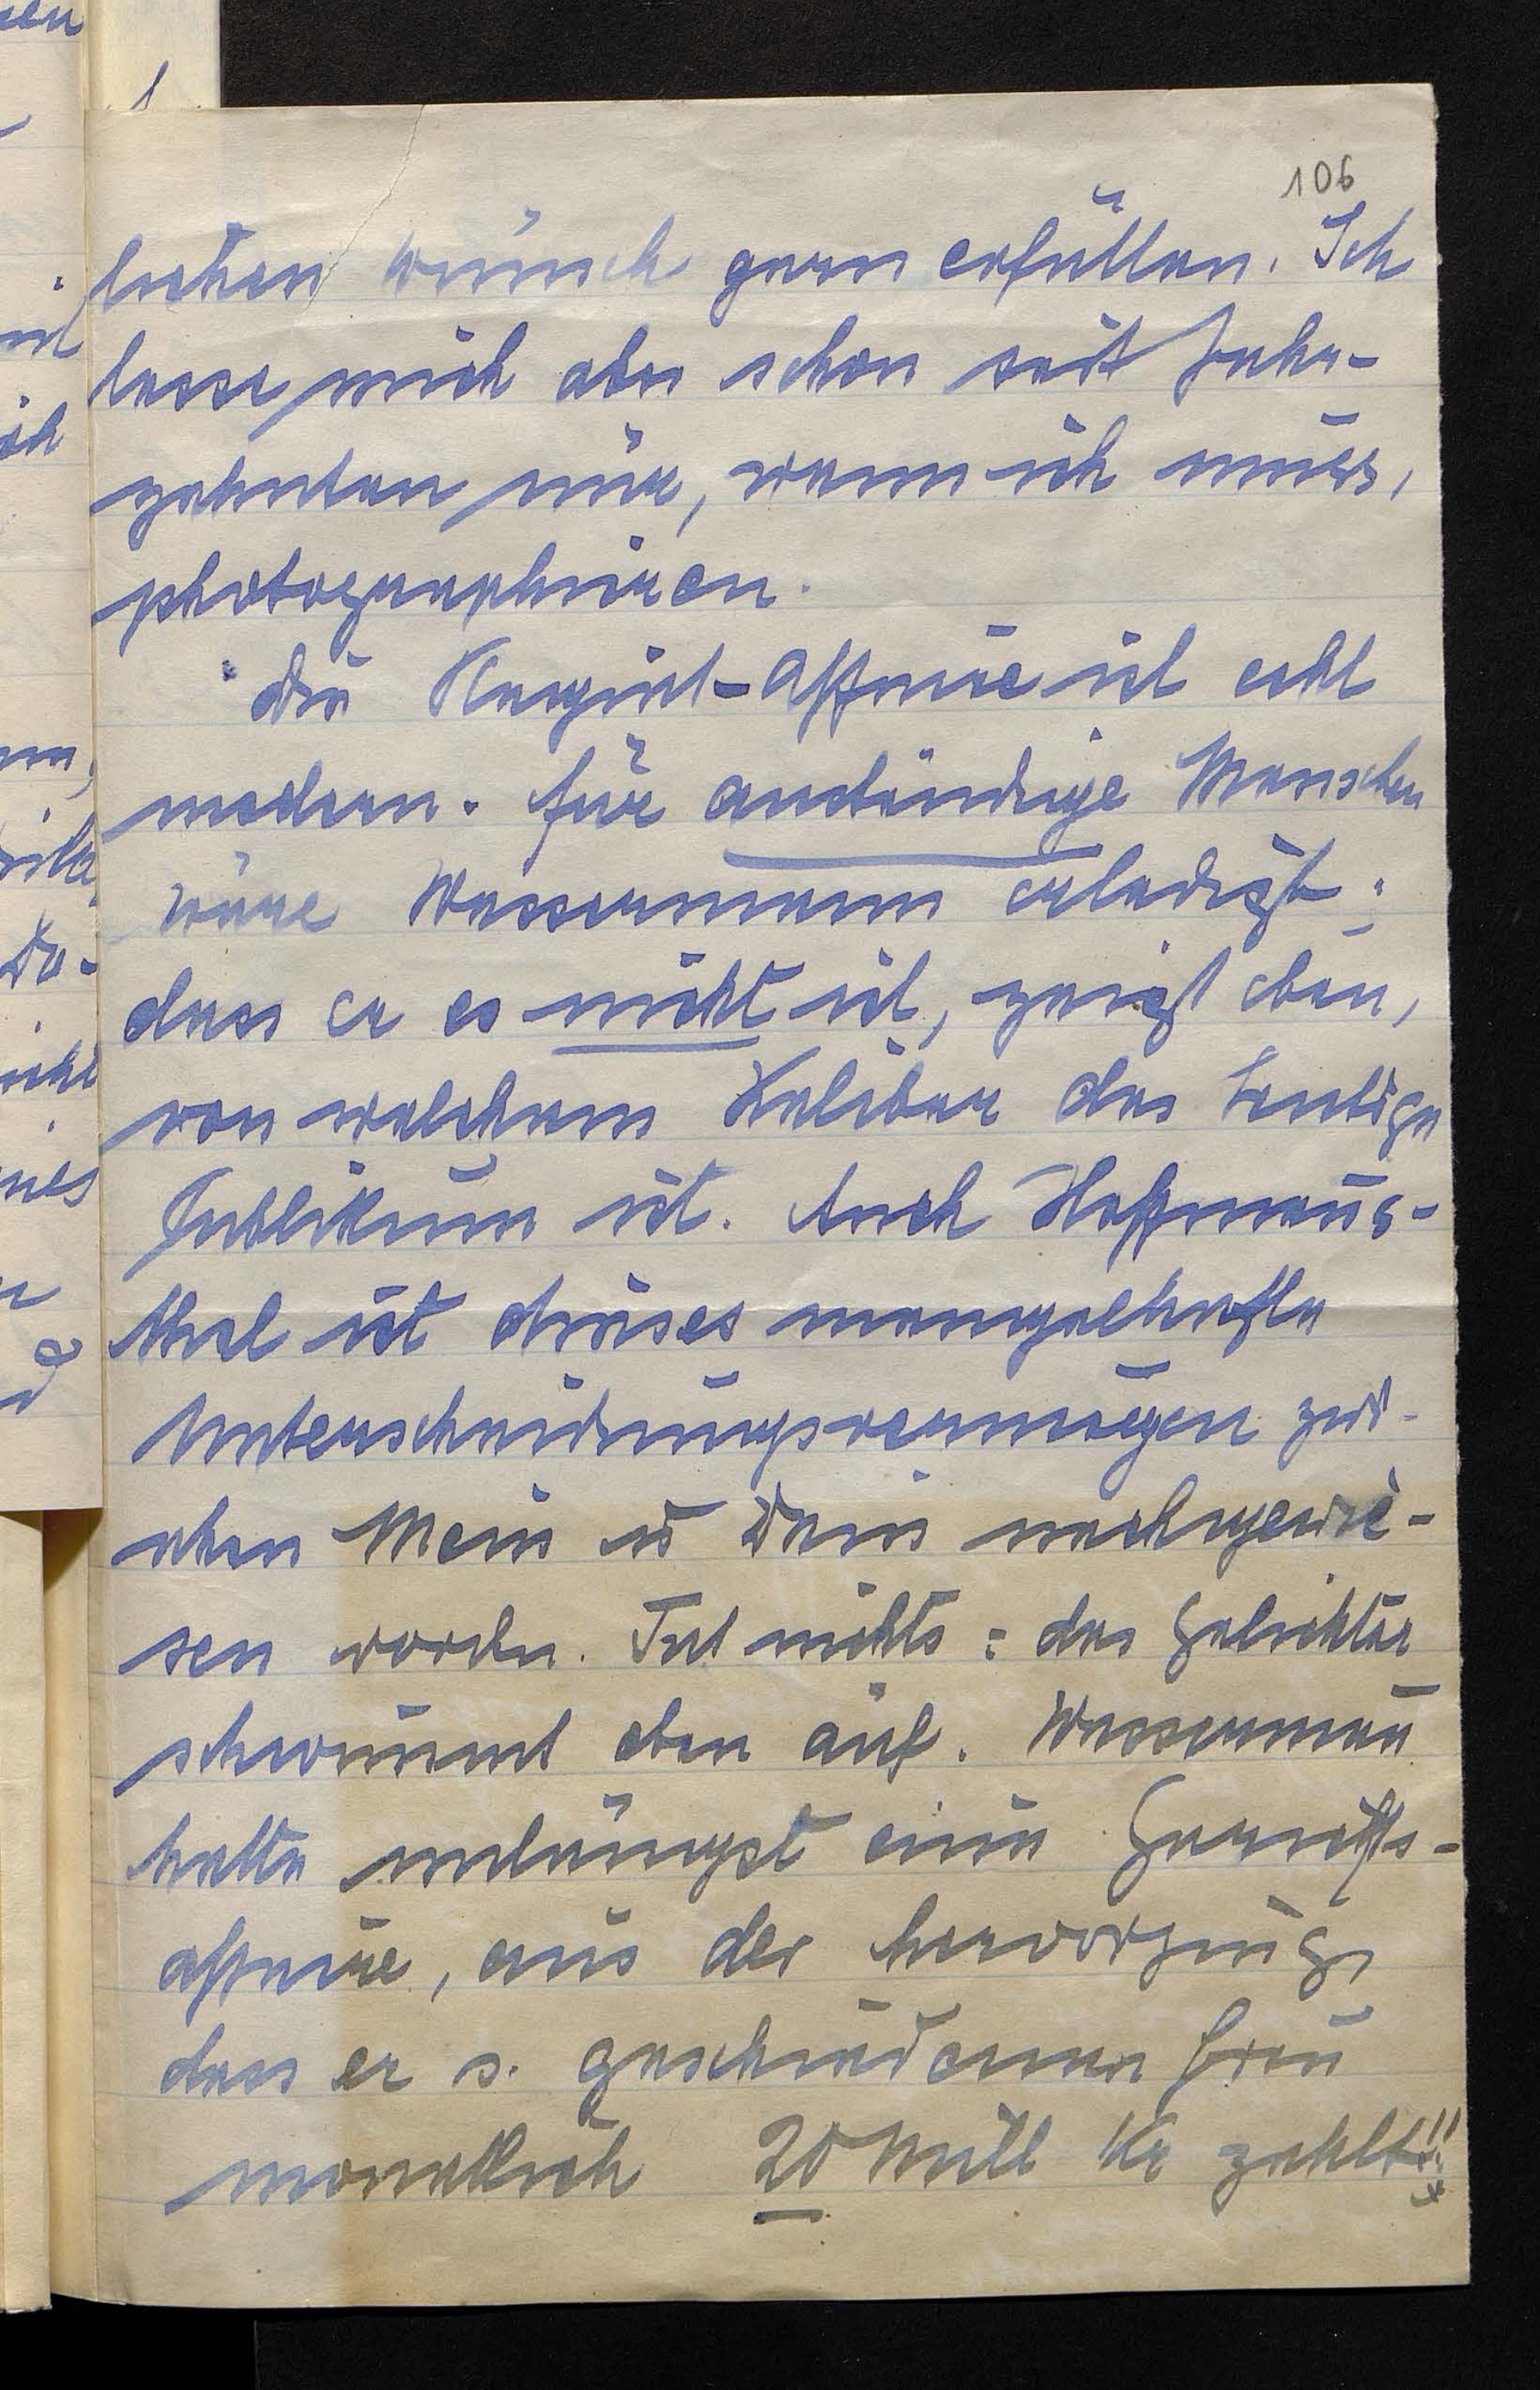 106
lichen Wunsch gern erfüllen. Ich
lasse mich aber schon seit Jahr-
zehnten nur, wenn ich muss,
photographiren.
Die Plagiat-Affaire ist echt
modern. Für anständige Menschen
wäre Wassermann erledigt;
dass er es nicht ist, zeigt eben,
von welchem Kaliber das heutige
Publikum ist. Auch Hoffmans-
thal ist dieses mangelhafte
Unterscheidungsvermögen zwi-
schen Mein u Dein nachgewie-
sen worden. Tut nichts: das Gelichter
schwimmt oben auf. Wasserman̄
hatte unlängst eine Gerichts-
affaire, aus der hervorging,
dass er s. geschiedenen Frau
monatlich 20 Mill Kr zahlt!!